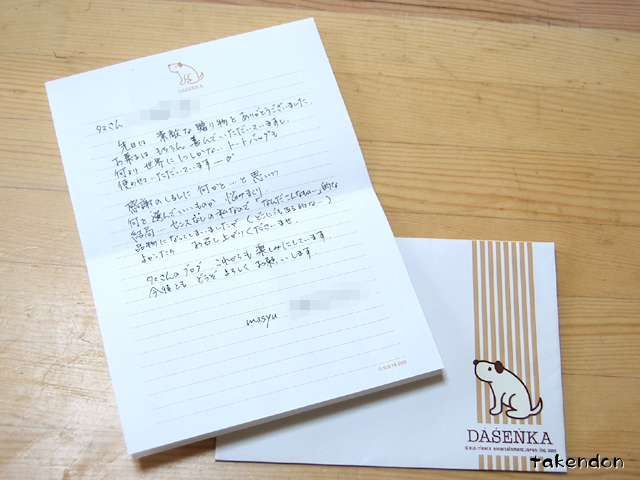 DÁŠEŇKA
タケさん
先日は 素敵な贈り物を ありがとうございました。
お菓子は もちろん 喜んでいただいていますし
何より 世界に 1つしかない トートバッグも
使わせて いただいていますーヮ
感謝のしるしに 何かと…と思いつつ
何を選んでいいものか 悩みまくり…
結局… センスなしの私なので「なんだこんなもの…」的な
品物になってしまいましたが(どこにもある的な…)
よかったら お召し上がりくださいませ。
タケさんのブログ これからも 楽しみにしています
今後とも どうぞ よろしく お願いします
masyu
DÁŠEŇKA
takendon